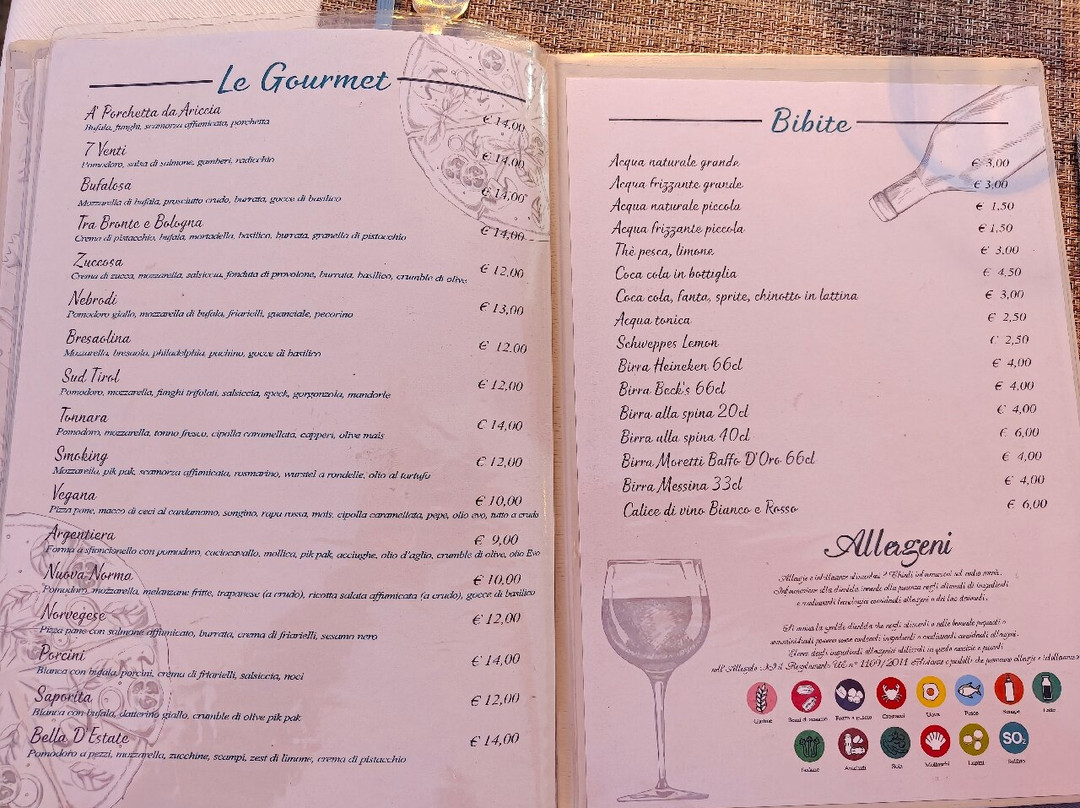 Le Gourmet
A' Porchetta da Ariccia € 14,00
Bufala, funghi, scamorza affumicata, porchetta
7 Venti € 14,00
Pomodoro, salsa di salmone, gamberi, radicchio
Bufalosa € 14,00
Mozzarella di bufala, prosciutto crudo, burrata, gocce di basilico
Tra Bronte e Bologna € 14,00
Crema di pistacchio, bufala, mortadella, basilico, burrata, granella di pistacchio
Zuccosa € 12,00
Crema di zucca, mozzarella, salsiccia, fonduta di provolone, burrata, basilico, crumble di olive
Nebrodi € 13,00
Pomodoro giallo, mozzarella di bufala, friarielli, guanciale, pecorino
Bresaolina € 12.00
Mozzarella, bresaola, philadelphia, pachino, gocce di basilico
Sud Tirol € 12,00
Pomodoro, mozzarella, funghi trifolati, salsiccia, speck, gorgonzola, mandorle
Tonnara € 14,00
Pomodoro, mozzarella, tonno fresco, cipolla caramellata, capperi, olive mais
Smoking € 12,00
Mozzarella, pik pak, scamorza affumicata, rosmarino, wurstel a rondelle, olio al tartufo
Vegana € 10,00
Pizza pane, macco di ceci al cardamomo, songino, rapa rossa, mais, cipolla caramellata, pepe, olio evo, tutto a crudo
Argentiera € 9,00
Forma a sfioncionello con pomodoro, caciocavallo, mollica, pik pak, acciughe, olio d'aglio, crumble di olive, olio Evo
Nuova Norma € 10,00
Pomodoro, mozzarella, melanzane fritte, trapanese (a crudo), ricotta salata affumicata (a crudo), gocce di basilico
Norvegese € 12,00
Pizza pane con salmone affumicato, burrata, crema di friarielli, sesamo nero
Porcini € 14,00
Bianca con bufala, porcini, crema di friarielli, salsiccia, noci
Saporita € 12,00
Bianca con bufala, datterino giallo, crumble di olive pik pak
Bella D'Estate € 14,00
Pomodoro a pezzi, mozzarella, zucchine, scampi, zest di limone, crema di pistacchio
Bibite
Acqua naturale grande € 3,00
Acqua frizzante grande € 3,00
Acqua naturale piccola € 1,50
Acqua frizzante piccola € 1,50
Thè pesca, limone € 3,00
Coca cola in bottiglia € 4,50
Coca cola, fanta, sprite, chinotto in lattina € 3,00
Acqua tonica € 2,50
Schweppes Lemon € 2,50
Birra Heineken 66cl € 4,00
Birra Beck's 66cl € 4,00
Birra alla spina 20cl € 4,00
Birra alla spina 40cl € 6,00
Birra Moretti Baffo D'Oro 66cl € 4,00
Birra Messina 33cl € 4,00
Calice di vino Bianco e Rosso € 6,00
Allergeni
Allergie e intolleranze alimentari?
Si avvisa la gentile clientela che negli alimenti
Elenco degli ingredienti allergenici utilizzati in questo esercizio e presenti
nell'Allegato II Regolamento UE n° 1169/2011
Glutine
Uova
Pesce
Senape
Latte
Sedano
Arachidi
Soia
Molluschi
Lupini
SO2
Solfito